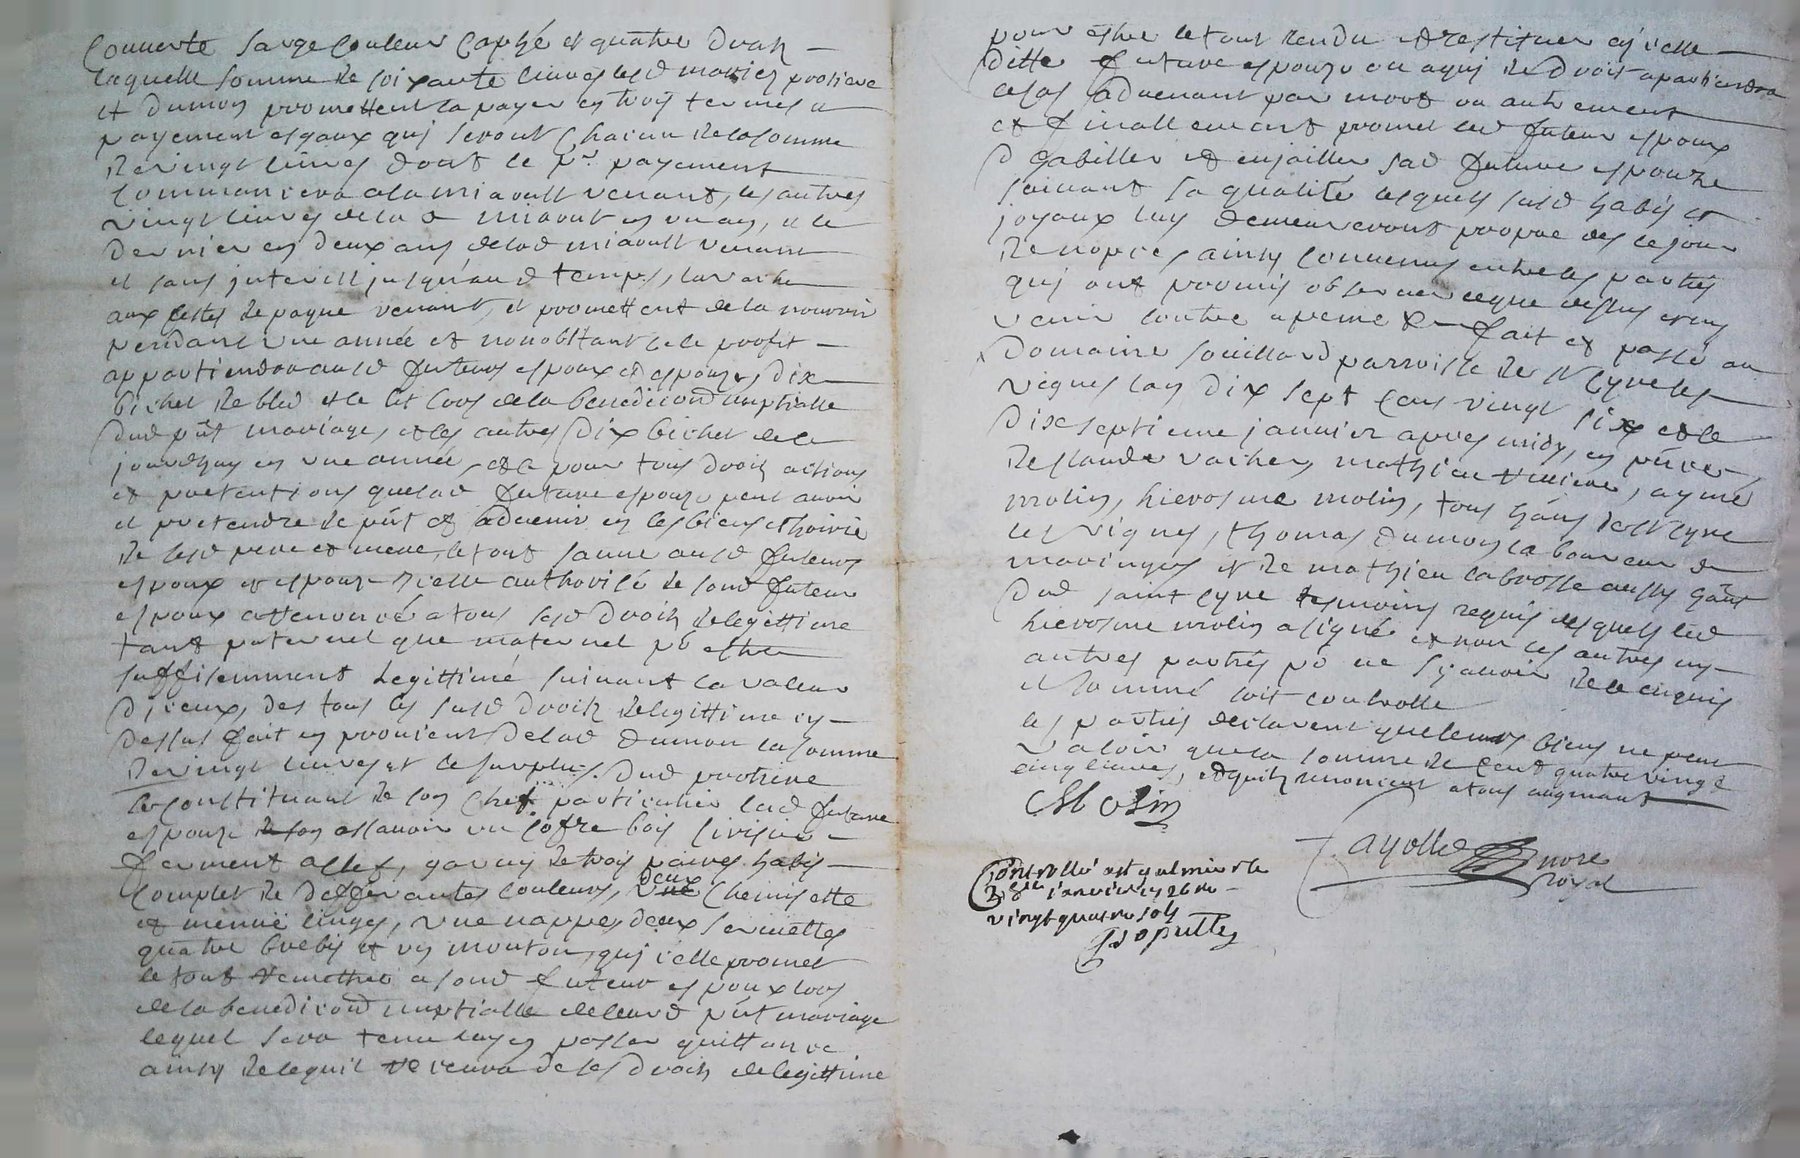 Couuerte sarge Couleur Caphé et quatre draps
laquelle somme de soixante liures lesd mariez protiere
et Dumon promettent la payer en trois termes et
payement esgaux qui seront Chacun de la somme
de vingt liures dont le pr payement
Commancera a la miaoust venant, les autres
vingt liures de la d miaout en un an, et le
dernier en deux ans de lad miaoust venant
et sans interest jusqu'aud temps, la vache
aux festes de paque venant, et promettent de la nourrir
pendant une année et nonobstant ce le profit
appartiendra ausd futeurs espoux et espouze, dix
bichet de bled et le lit lors de la benediction nuptialle
dud pnt mariage, et les autres dix bichet de ce
jourdhuy en une année, et ce pour tous droits actions
et pretentions que lad future espouze peut avoir
et pretendre de pnt et aduenir en les biens et hoirie
de sesd pere et mere, le tout sauue ausd futeurs
espoux et espouze icelle authorisé de sond futeur
espoux a renoncé a tous sesd droits de legittime
tant paternel que maternel po estre
suffisemment legittimé suiuant la valeur
diceux, des tous les susd droits de legittime cy
dessus fait en prouient de lad Dumon la somme
de vingt liures et le surplus dud protiere
se constituant de son Chef particulier lad future
espouze assauoir un cofre bois
ferment a clef, garny de trois paires habis
Complet de defferantes couleurs, deux Chemisette
et menue linges, une nappe, deux seruiettes
quatre brebis et un mouton, qui icelle promet
le tout remettre a sond futeur espoux lors
de la benediction nuptialle de leurd pnt mariage
lequel sera tenu luy en passer quittance
ainsy de ce quil receura de ses droits de legittime
pour estre le tout rendu et restituer a icelle
ditte future espouze ou a qui de droit apartiendra
le cas aduenant par mort ou autrement
et finallement promet led futeur espoux
d'habiller et enjoailler sad future espouze
suiuant sa qualité lesquels susd habis et
joyaux luy demeureront propre des le jour
de nopces, ainsy conuenus entre les parties
qui ont promis obseruer ce que dessus et ny
venir contre a peine &. fait et passé au
domaine souillard parroisse de St Cyre les
vignes lan dix sept cens vingt six et le
dix septieme januier apres midy, en pnce
de Claude vacher, mathieu, aymé
molin, hierosme molin, tous hans de St Cyre
les vignes, thomas dumon laboureur de
maringes et de mathieu labrosse aussy hant
dud saint cyre tesmoins requis desquels led
hierosme molin a signé et non les autres ny
autres parties po ne sçauoir de ce enquis
et sommé soit controllé
les parties declarent que leurs biens ne peut
valoir que la somme de cent quatre vingt
cinq liures, et quils renoncent a tous augment
H Molin
fayolle nore
royal
Controllé a st galmier le
28e januier 1726 ro
vingt quatre sols